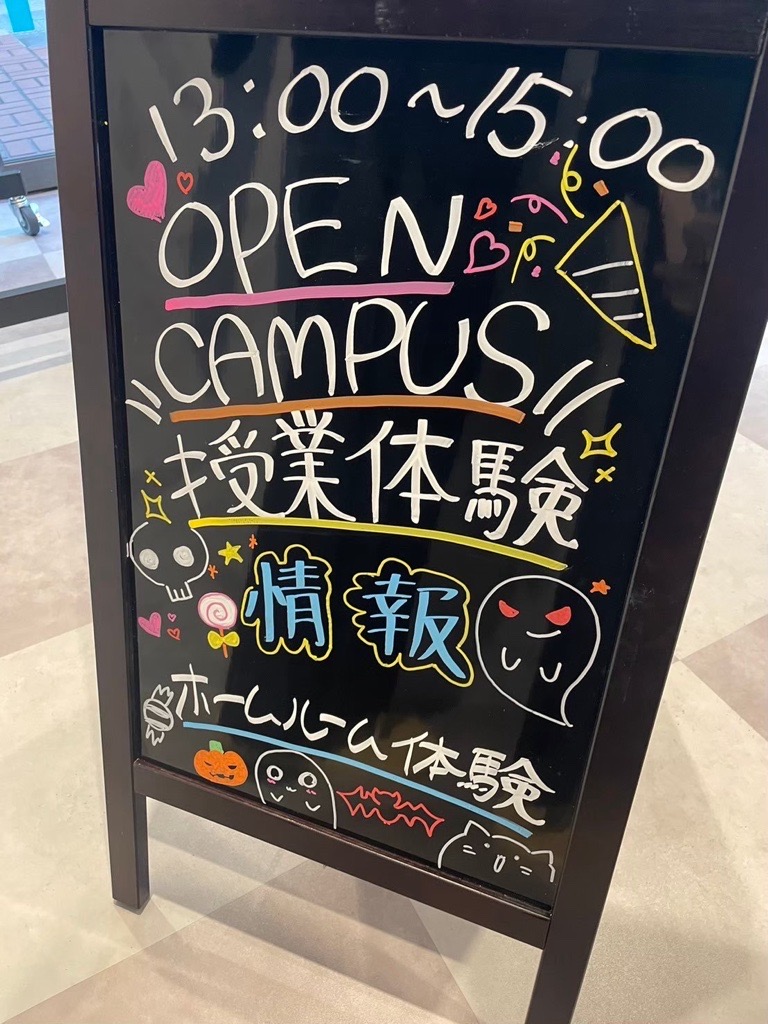 13:00~15:00
OPEN
CAMPUS
授業体験
情報
ホームルーム体験